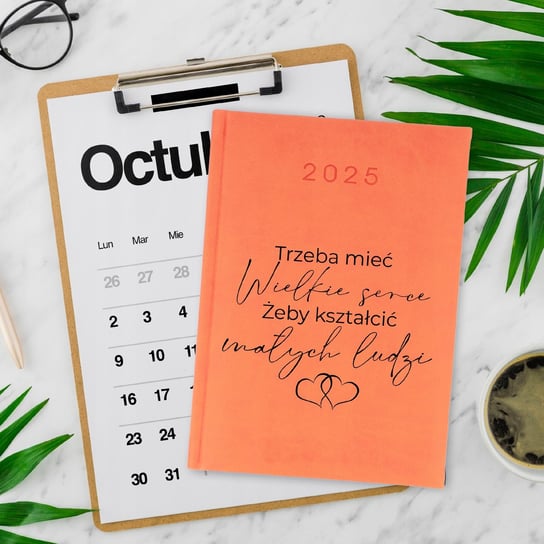 Octub
Lun Mar Mie
26 27 28
2 3 4
9 10 11
16 17 18
23 24
30 31
2025
Trzeba mieć
Wielkie serce
Żeby kształcić
małych ludzi